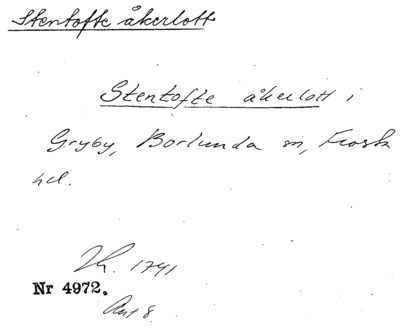 Stentofte åkerlott
Stentofte åkerlott i
Gryby, Borlunda sn, Frosta
hd.
Lh. 1741
Nr 4972.
Ant 8